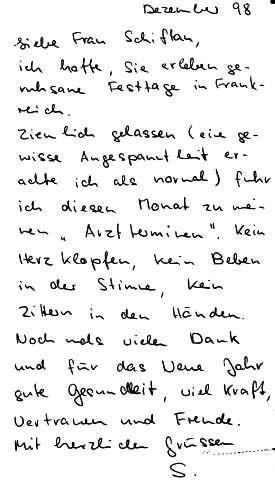 Dezember 98
Liebe Frau Schiftan,
ich hoffe, Sie erleben ge-
ruhsame Festtage in Frank-
reich.
Ziemlich gelassen (eine ge-
wisse Angespanntheit er-
achte ich als normal) fuhr
ich diesen Monat zu mei-
nen "Arztterminen". Kein
Herzklopfen, kein Beben
in der Stimme, kein
Zittern in den Händen.
Nochmals vielen Dank
und für das Neue Jahr
gute Gesundheit, viel Kraft,
Vertrauen und Freude.
Mit herzlichen Grüssen
S.